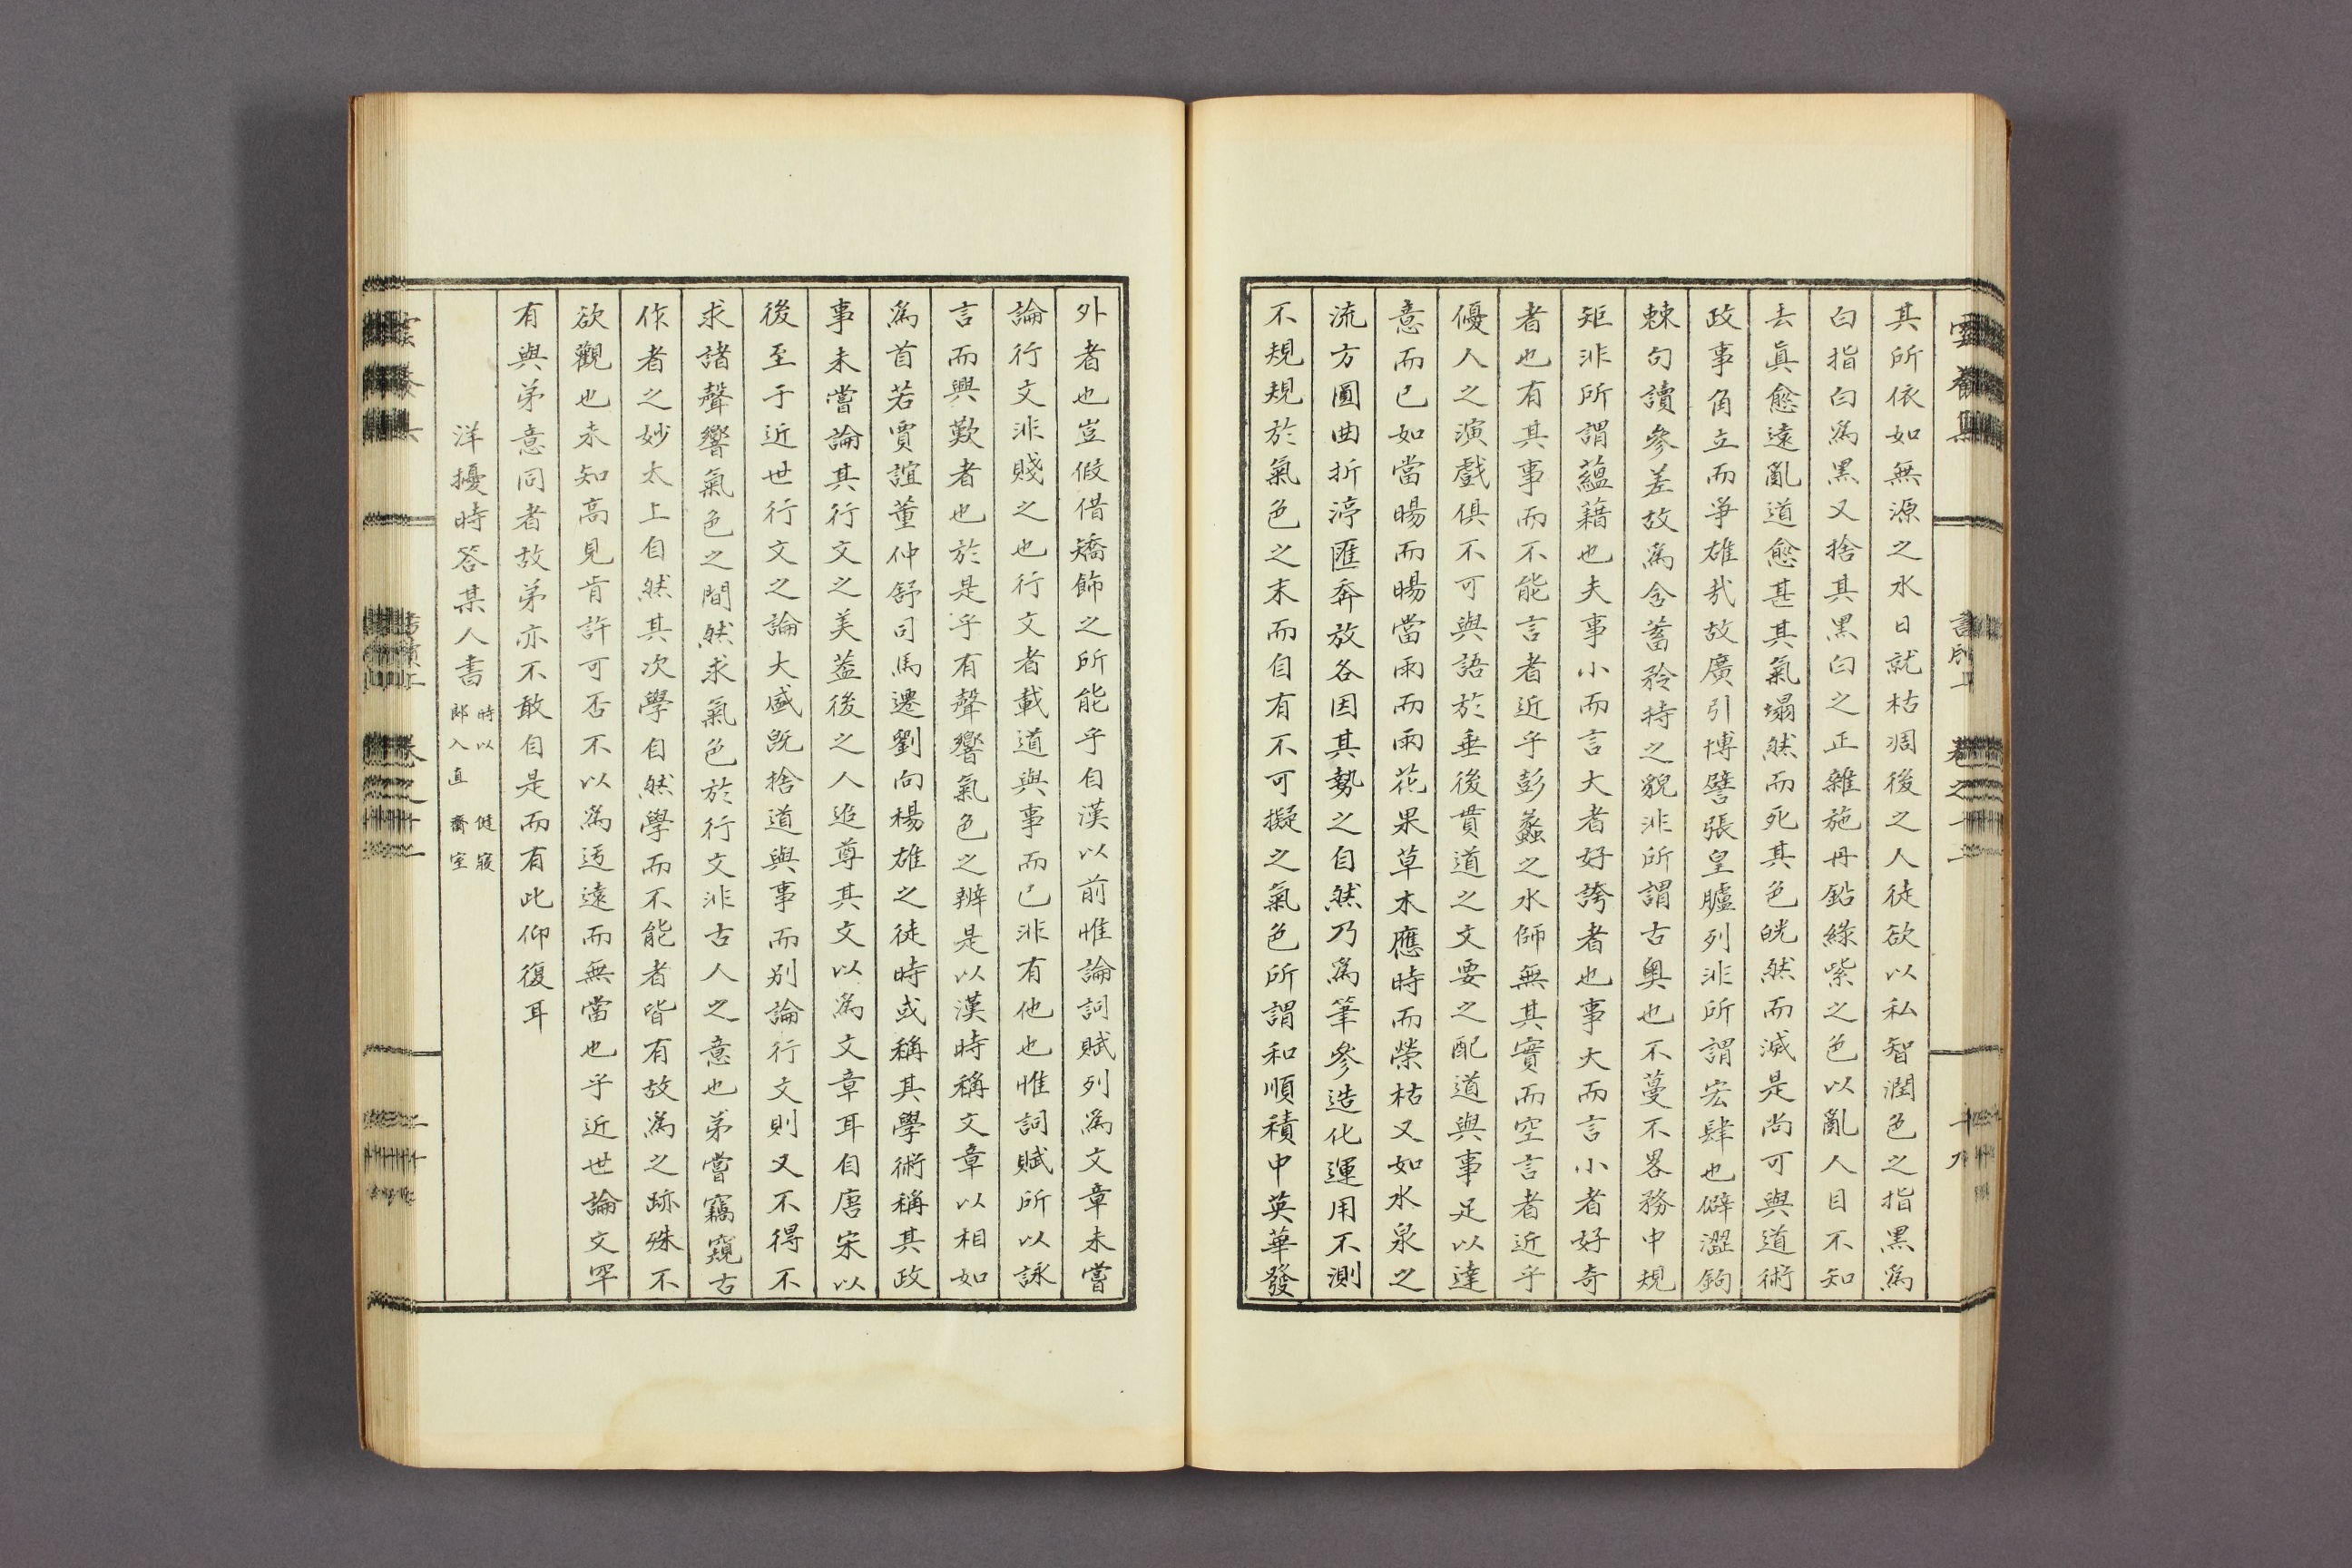 其所依如無源之水日就枯涸後之人徒欲以私智潤色之指黑爲
白指白爲黑又捨其黑白之正雜施丹鉛綠紫之色以亂人目不知
去眞愈遠亂道愈甚其氣塌然而死其色晄然而滅是尚可與道術
政事角立而爭雄㢤故廣引博譬張皇臚列非所謂宏肆也僻澀鉤
棘句讀參差故爲含蓄矜持之貌非所謂古奥也不蔓不畧務中規
矩非所謂蘊藉也夫事小而言大者好誇者也事大而言小者好奇
者也有其事而不能言者近乎彭蠡之水師無其實而空言者近乎
優人之演戲俱不可與語於垂後貫道之文要之配道與事足以達
意而已如當暘而暘當雨而雨花果草木應時而榮枯又如水泉之
流方圓曲折渟匯奔放各因其勢之自然乃爲筆參造化運用不測
不規規於氣色之末而自有不可擬之氣色所謂和順積中英華發
外者也豈假借矯飾之所能乎自漢以前惟論詞賦列爲文章未嘗
論行文非賤之也行文者載道與事而已非有他也惟詞賦所以詠
言而興歎者也於是乎有聲響氣色之辨是以漢時稱文章以相如
爲首若賈誼董仲舒司馬遷劉向楊雄之徒時或稱其學術稱其政
事未嘗論其行文之美葢後之人追尊其文以爲文章耳自唐宋以
後至于近世行文之論大盛旣捨道與事而别論行文則又不得不
求諸聲響氣色之間然求氣色於行文非古人之意也弟嘗竊窺古
作者之妙太上自然其次學自然學而不能者皆有故爲之跡殊不
欲觀也未知高見肯許可否不以爲迃遠而無當也乎近世論文罕
有與弟意同者故弟亦不敢自是而有此仰復耳
洋擾時答某人書 時以 健寢
郎入直 齋室